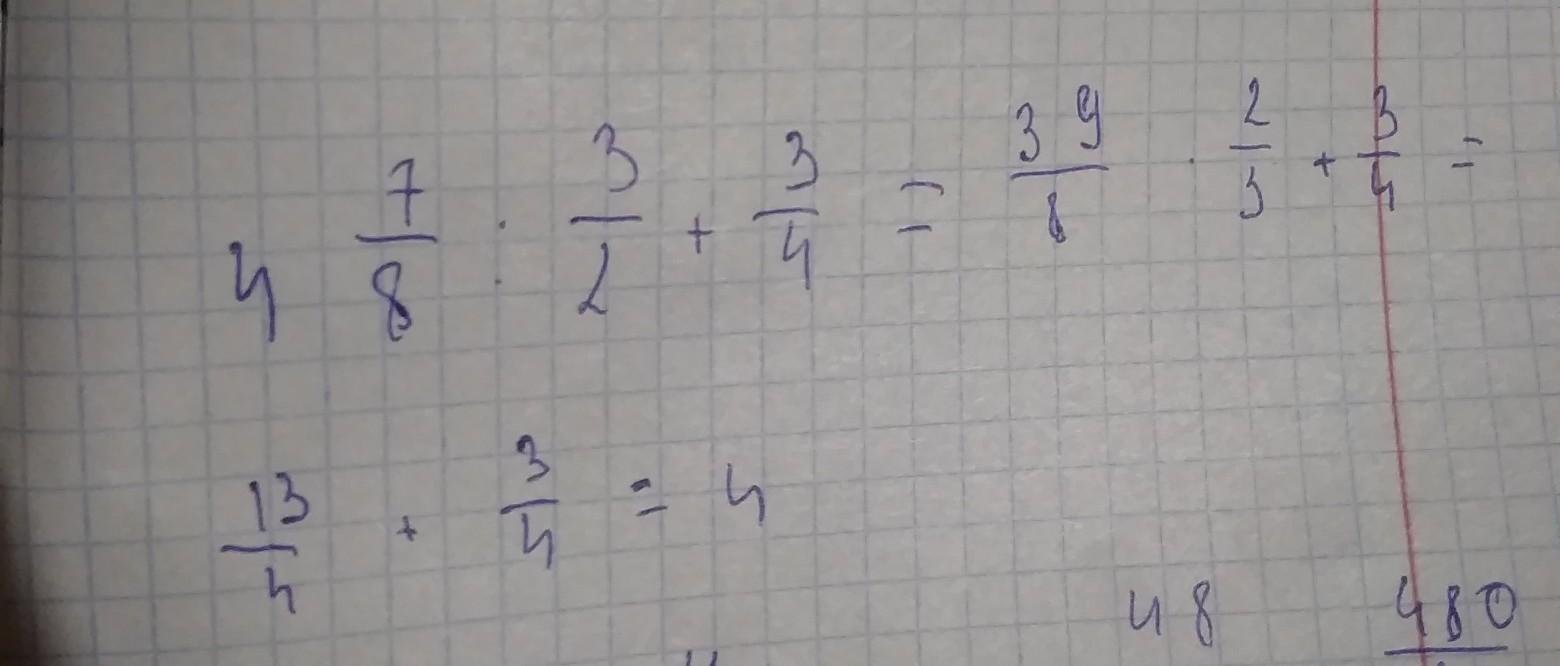 4 7/8 : 3/2 + 3/4 = 39/8 · 2/3 + 3/4 =
13/4 + 3/4 = 4
48 480